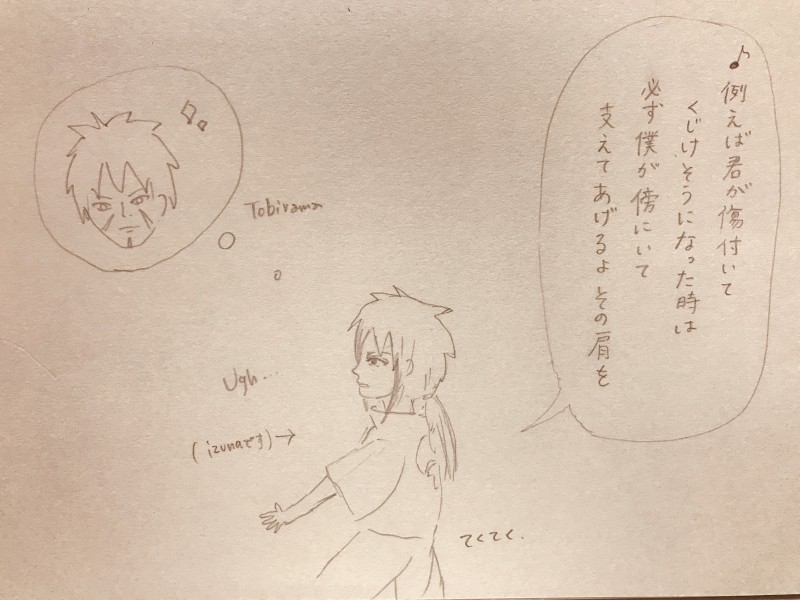 ♪例えば君が傷付いて
くじけそうになった時は
必ず僕が傍にいて
支えてあげるよその肩を
Tobirama
Ugh...
(izunaです)→
てくてく.